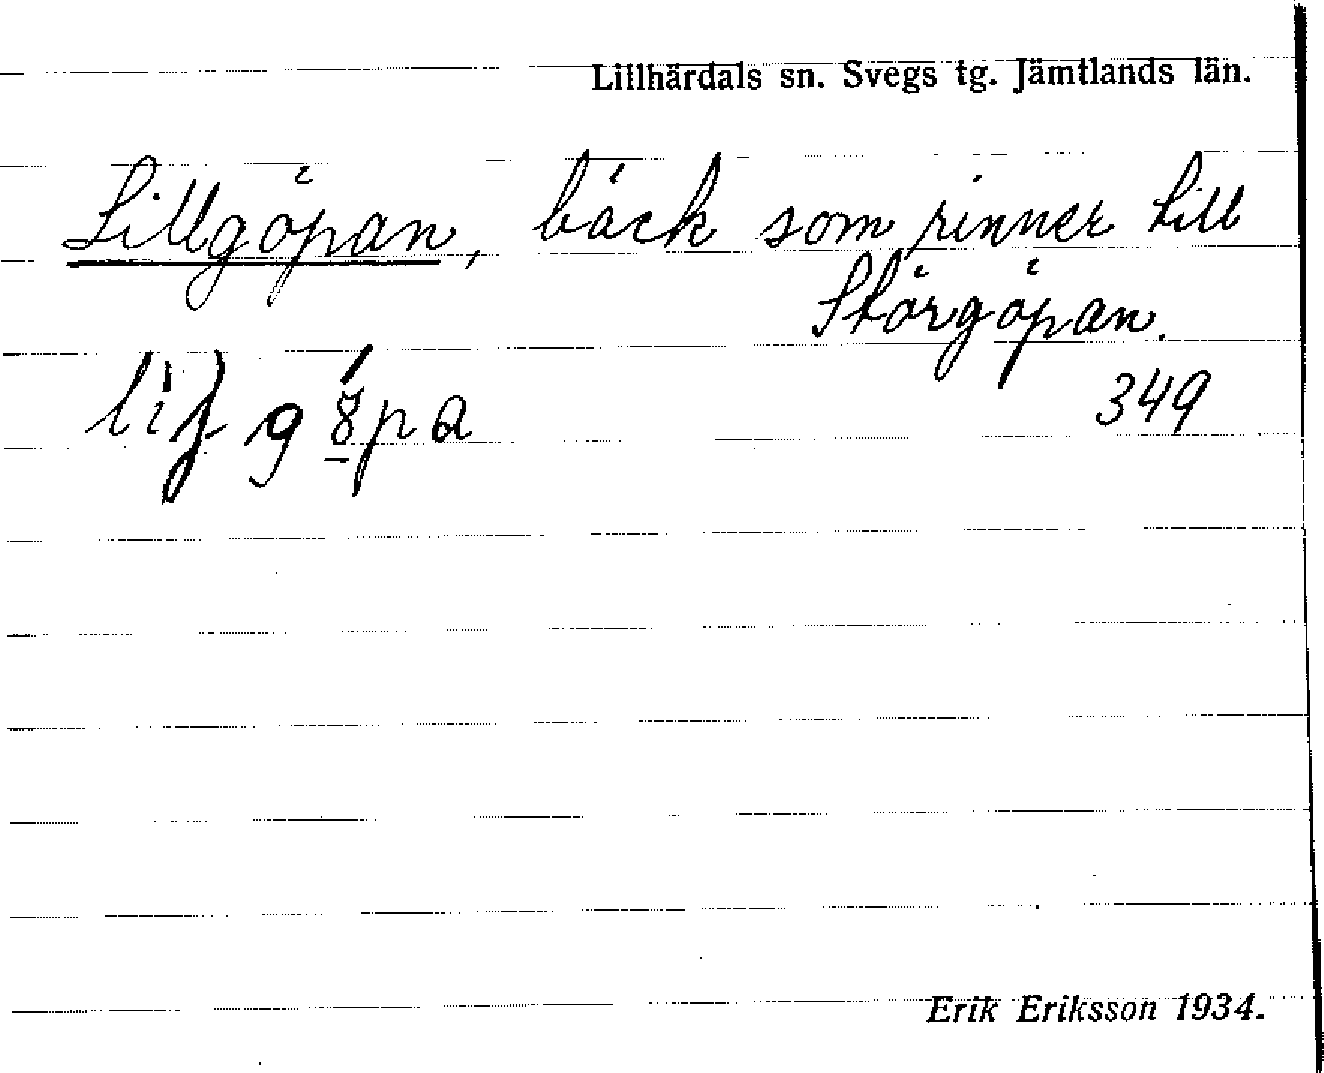 Lillhärdals sn. Svegs tg. Jämtlands län.
Lillgöpan, bäck som rinner till
Störgöpan.
349
Erik Eriksson 1934.